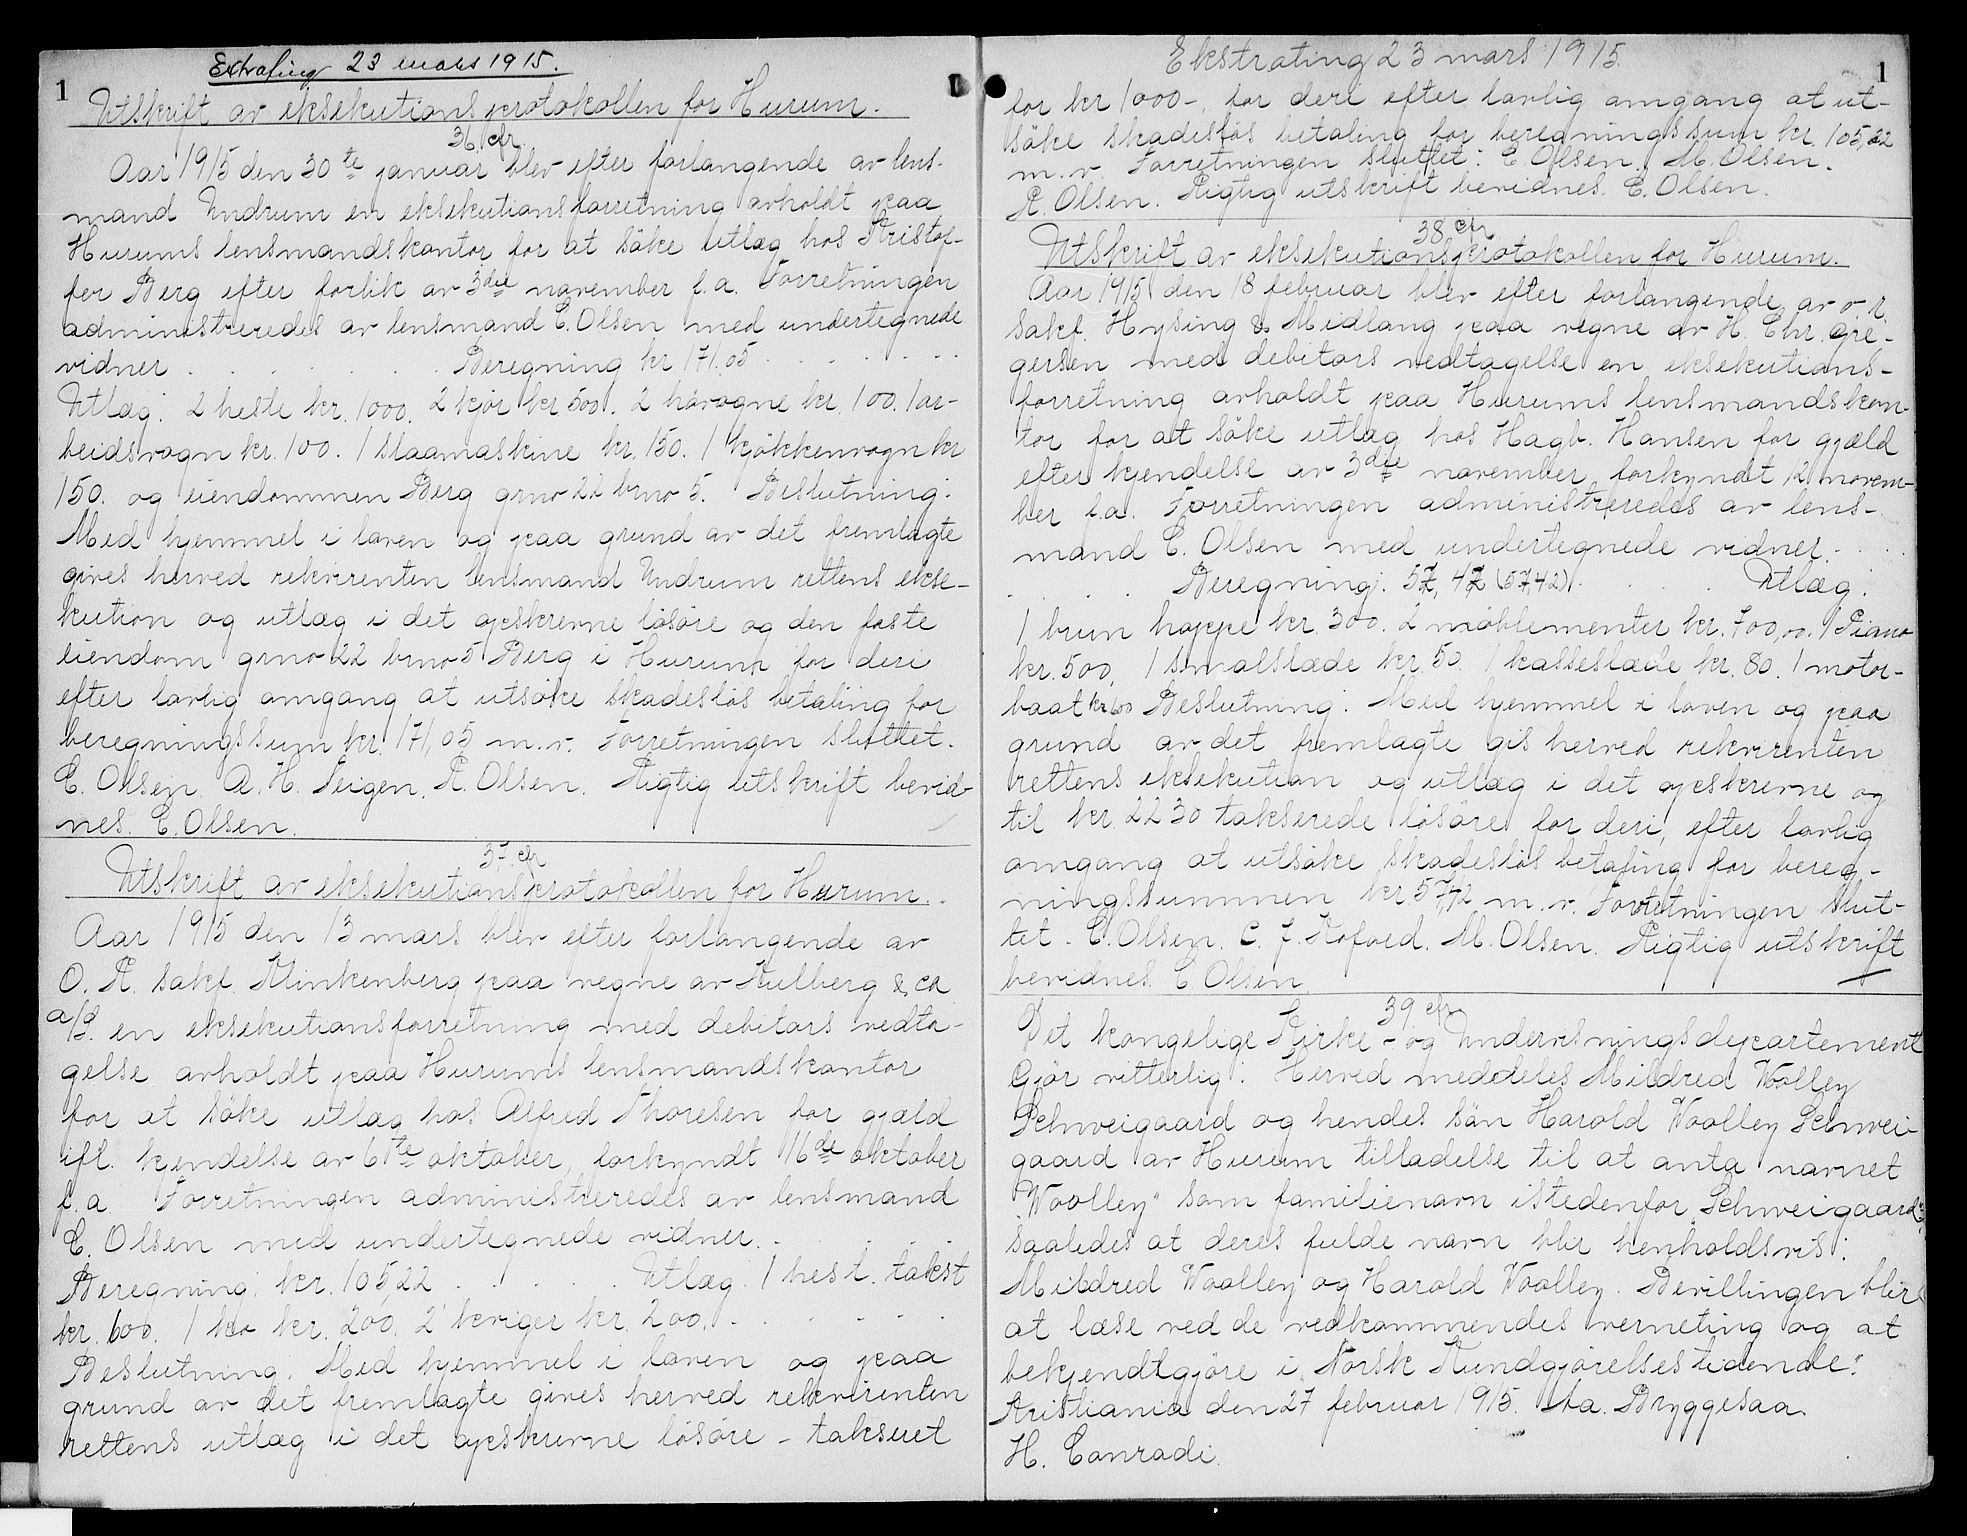 Extrating 23 mars 1915.
1
Utskrift av eksekutionsprotokollen for Hurum.
36 cfr.
Aar 1915 den 30te januar blev efter forlangende av lens-
mand Undrum en eksekutionsforretning avholdt paa
Hurums lensmandskontor for at söke utlæg hos Kristof-
fer Berg efter forlik av 3die november f.a. Forretningen
administreredes av lensmand E. Olsen med undertegnede
vidner . . . . . . . Beregning kr 171.05 . . . . . .
Utlæg: 2 heste kr. 1000. 2 kjör kr 500. 2 hövogne kr. 100. 1 ar-
beidsvogn kr. 100. 1 slaamaskine kr. 150. 1 kjökkenvogn kr
150. og eiendommen Berg grno 22 brno 5. Beslutning:
Med hjemmel i loven og paa grund av det fremlagte
gives herved rekvirenten lensmand Undrum rettens ekse-
kution og utlæg i det opskrevne lösöre og den faste
eiendom grno 22 brno 5 Berg i Hurum for deri
efter lovlig omgang at utsöke skadeslös betaling for
beregningssum kr. 171,05 m.v. Forretningen sluttet.
E. Olsen. A. H. Seigen. R. Olsen. Rigtig utskrift bevid-
nes. E. Olsen.
37 cfr
Utskrift av eksekutionsprotokollen for Hurum.
Aar 1915 den 13 mars blev efter forlangende av
O. R. sakf. Klinkenberg paa vegne av Kulberg & co
a/s. en eksekutionsforretning med debitors vedta-
gelse avholdt paa Hurums lensmandskontor
for at söke utlæg hos Alfred Thoresen for gjæld
ifl. kjendelse av 6te oktober, forkyndt 16de oktober
f.a Forretningen administreredes av lensmand
E. Olsen med undertegnede vidner. . . . .
Beregning: kr. 105,22 . . . . . Utlæg: 1 hest. takst
kr. 600. 1 ko kr. 200, 2 kviger kr. 200. . . . . . .
Beslutning: Med hjemmel i loven og paa
grund av det fremlagte gives herved rekvirenten
rettens utlæg i det opskrevne lösöre - takseret
Ekstrating 23 mars 1915.
1
for kr 1000-, for deri efter lovlig omgang at ut-
söke skadeslös betaling for beregningssum kr. 105,22
m.v. Forretningen sluttet: E Olsen. M. Olsen.
R. Olsen. Rigtig utskrift bevidnes. E. Olsen.
38 cfr
Utskrift av eksekutionsprotokollen for Hurum.
Aar 1915 den 18 februar blev efter forlangende av o. r.
sakf. Hysing & Midlang paa vegne av H. Chr. Gre-
gersen med debitors vedtagelse en eksekutions-
forretning avholdt paa Hurums lensmandskon-
tor for at söke utlæg hos Hagb. Hansen for gjæld
efter kjendelse av 3die november forkyndt 12 novem-
ber f.a. Forretningen administreredes av lens-
mand E. Olsen med undertegnede vidner. . . .
. . . . Beregning: 57,42 (57,42) . . . . Utlæg:
1 brun hoppe kr. 300. 2 möblementer kr. 700,00. 1 Piano
kr. 500, 1 smalslæde kr. 50. 1 kasseslæde kr. 80. 1 motor-
baat kr 600 Beslutning: Med hjemmel i loven og paa
grund av det fremlagte gis herved rekvirenten
rettens eksekution og utlæg i det opskrevne og
til kr. 2230 takserede lösöre for deri, efter lovlig
omgang at utsöke skadeslös betaling for bereg-
ningssummen kr 57,42 m.v. Forretningen slut-
tet. E. Olsen. C. J. Kofoed. M. Olsen. Rigtig utskrift
bevidnes. E Olsen.
39 cfr
Det kongelige Kirke- og Undervisningsdepartement
Gjör vitterlig: Herved meddeles Mildred Woolley
Schweigaard og hendes sön Harold Woolley Schwei-
gaard av Hurum tilladelse til at anta navnet
"Woolley" som familienavn istedenfor "Schweigaard",
saaledes at deres fulde navn blir henholdsvis:
Mildred Woolley og Harold Woolley. Bevillingen blir
at læse ved de vedkommendes verneting og at
bekjendtgjöre i "Norsk Kundgjörelsestidende".
Kristiania den 27 februar 1915. Aa. Bryggesaa
H. Conradi.